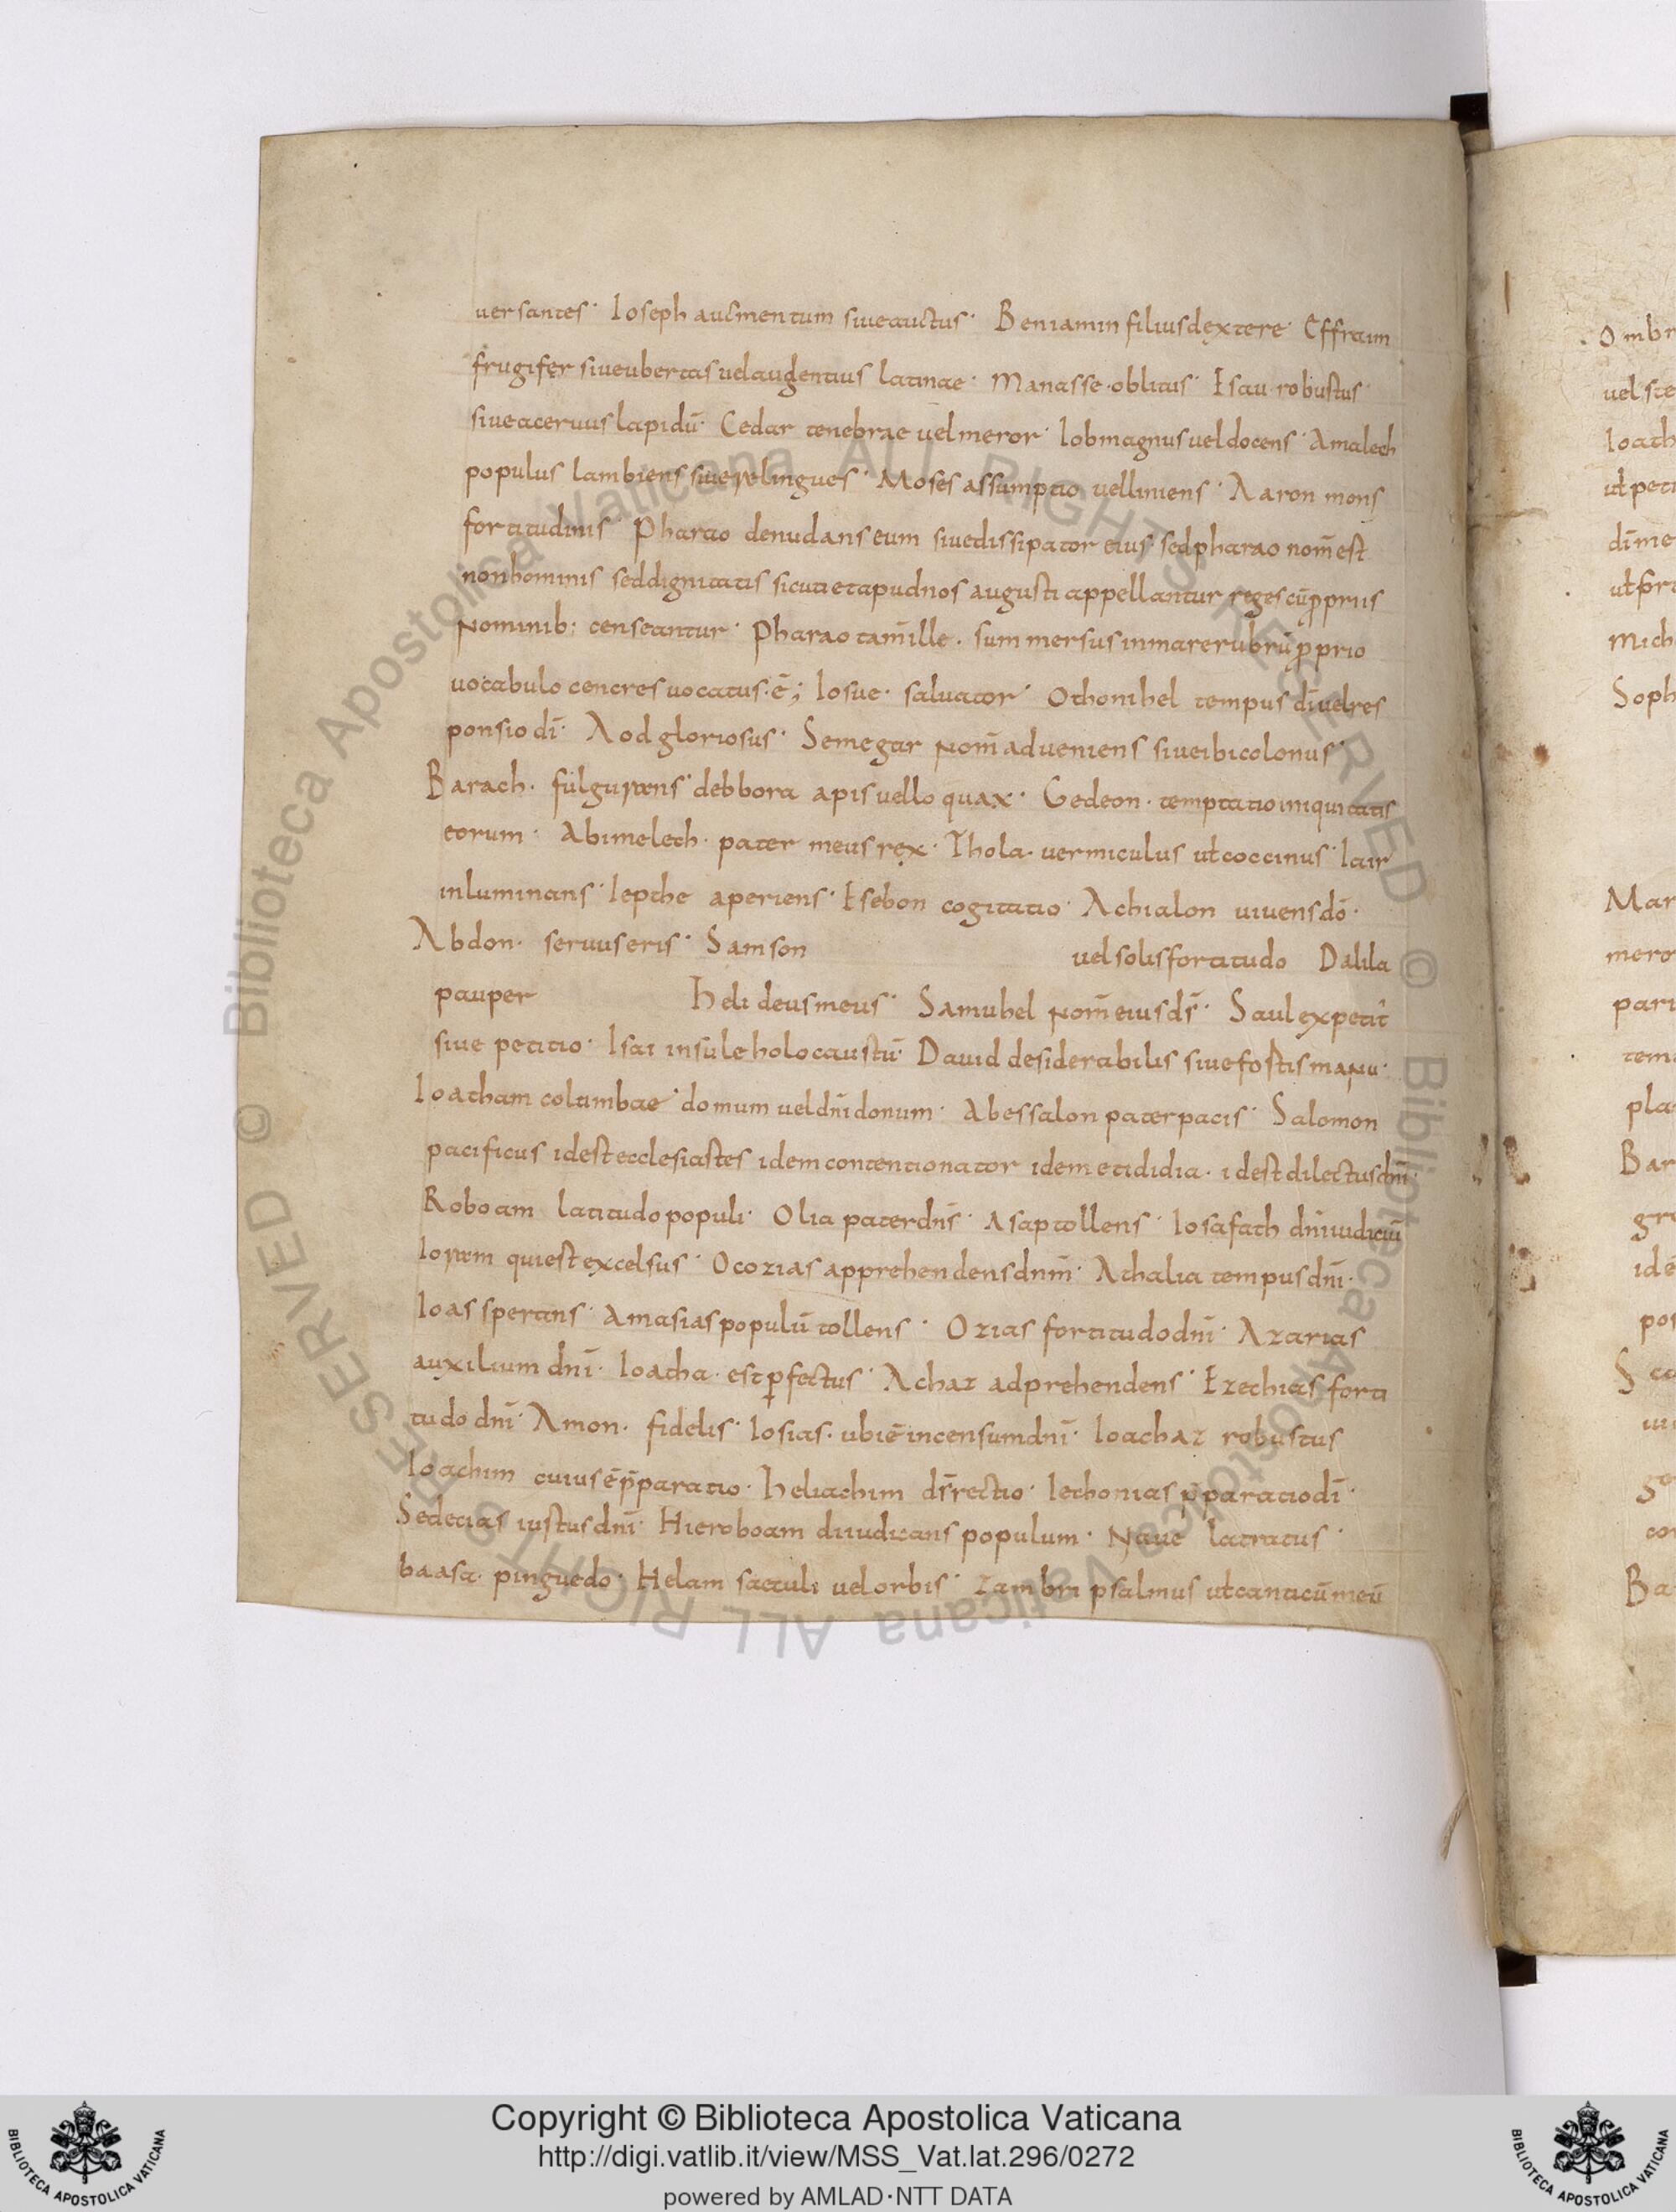 uersantes· Ioseph aucmentum siueauctus· Beniamin filiusdextere· Effraim
frugifer siueubertas uelaugentius latinae· Manasse·oblitus· Esau·robustus·
siueaceruus lapidū· Cedar tenebrae uel meror· Iob magnus uel docens· Amalech
populus lambiens siue relingues· Moses assumptio uelliniens· Aaron mons
fortitudinis· Pharao denudans eum siuedissipator eius· sedpharao nom̄ est
nonhominis seddignitatis sicutietapudnos augusti appellantur reges cūpropriis
Nominib: censeantur· Pharao tam̄ ille· summersus inmarerubrū proprio
uocabulo cencres uocatus·ē; Iosue· saluator· Othonihel tempus dī uelres
ponsio dī· Aod gloriosus· Semegar Nom̄ adueniens siueibicolonus·
Barach· fulgurans· debbora apis uello quax· Gedeon· temptatioiniquitatis
eorum· Abimelech· pater meus rex· Thola· uermiculus uł coccinus· Iair
inluminans· Iepthe aperiens· Esebon cogitatio· Achialon uiuens dō·
Abdon· seruus eris· Samson uel solis fortitudo Dalila
pauper Heli deusmeus· Samuhel Nom̄ eius ds̄· Saul expetit
siue petitio· Isai insule holocaustū· David desiderabilis siuefostis manu·
Ioatham columbae· domum ueldn̄idonum· Abessalon pater pacis· Salomon
pacificus idest ecclesiastes idem contentionator idem etididia· idest dilectus dn̄i·
Roboam latitudo populi· Olia pater dn̄s· Asap tollens· Iosafath dn̄iiudiciū
Ioram quiest excelsus· Ocozias apprehendens dnm̄· Athalia tempus dn̄i·
Ioas sperans· Amasias populū tollens· Ozias fortitudo dn̄i· Azarias
auxilium dn̄i· Ioatha· est perfectus· Achaz adprehendens· Ezechias forti
tudo dn̄i· Amon· fidelis· Iosias· ubiē incensum dn̄i· Ioachaz robustus
Ioachim cuius ē p̄paratio· Heliachim ds̄ rectio· Iechonias p̄paratiodī·
Sedecias iustus dn̄i· Hieroboam diiudicans populum· Naue latratus·
baasa· pinguedo· Helam saeculi uel orbis· Zambri psalmus uł canticū meū